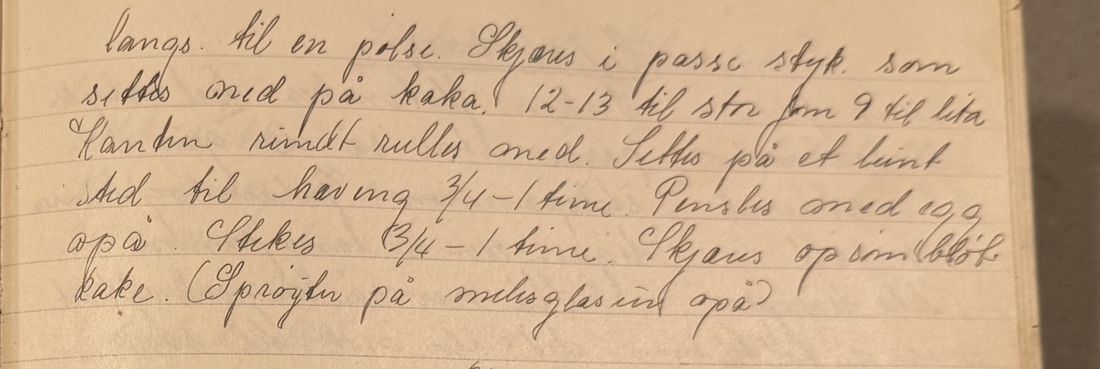 langs. til en pølse. Skjæres i passe styk. som
settes ned på kaka. 12-13 til stor form 9 til lita
Kanten rundt rulles ned. Settes på et lunt
sted til heving 3/4 - 1 time. Pensles med egg
opå. Stekes 3/4 - 1 time. Skjæres op som bløt
kake. (Sprøyter på melisglasur opå)